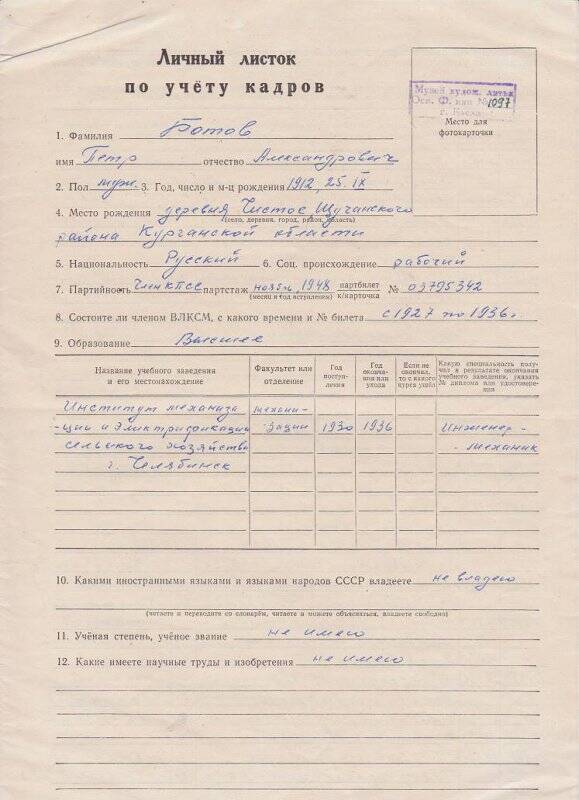 Личный листок
по учёту кадров
Музей худож. литья
Осн. Ф. инв № 1097
Место для
фотокарточки
1. Фамилия Ботов
имя Петр отчество Александрович
2. Пол муж. 3. Год, число и м-ц рождения 1912, 25. IX
4. Место рождения деревня Чистое Щучанского
(село, деревня, город, район, область)
района Курганской области
5. Национальность Русский 6. Соц. происхождение рабочий
7. Партийность Член КПСС партстаж ноябр. 1948 партбилет № 03795342
(месяц и год вступления) к/карточка
8. Состоите ли членом ВЛКСМ, с какого времени и № билета с 1927 по 1936 г.
9. Образование Высшее
Название учебного заведения и его местонахождение
Факультет или отделение
Год поступления
Год окончания или ухода
Если не окончил, то с какого курса ушёл
Какую специальность получил в результате окончания учебного заведения, указать № диплома или удостоверения
Институт механиза механи-
-ции и Электрификации зации 1930 1936 Инженер-
сельского хозяйства -механик
г. Челябинск
10. Какими иностранными языками и языками народов СССР владеете не владею
(читаете и переводите со словарём, читаете и можете объясняться, владеете свободно)
11. Учёная степень, учёное звание не имею
12. Какие имеете научные труды и изобретения не имею